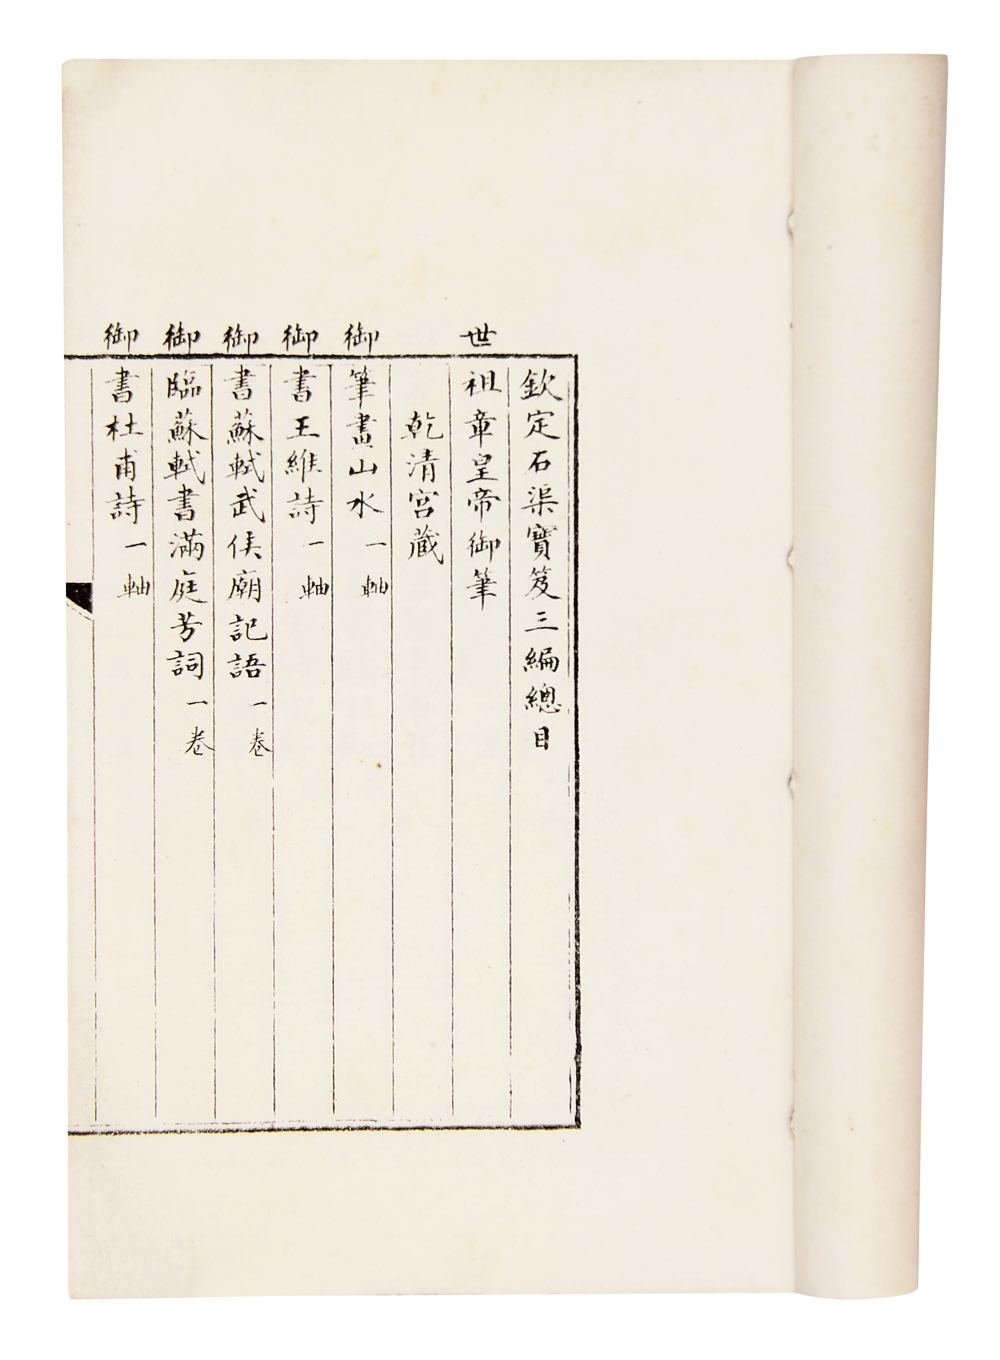 欽定石渠寶笈三編總目
世祖章皇帝御筆
乾清宮藏
御筆畫山水一軸
御書王維詩一軸
御書蘇軾武侯廟記語一卷
御臨蘇軾書滿庭芳詞一卷
御書杜甫詩一軸